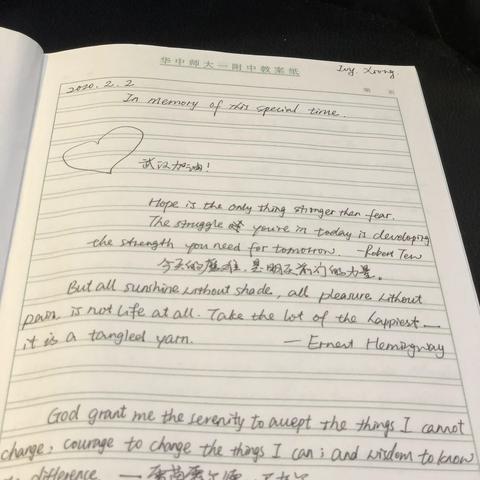 华中师大一附中教案纸
Ivy. Xiong
第 页
2020.2.2
In memory of this special time.
武汉加油!
Hope is the only thing stronger than fear.
The struggle you're in today is developing
the strength you need for tomorrow. -Robert Tew
今天的磨难,是明天前行的力量。
But all sunshine without shade, all pleasure without
pain, is not life at all. Take the lot of the happiest —
it is a tangled yarn. — Ernest Hemingway
God grant me the serenity to accept the things I cannot
change, courage to change the things I can; and wisdom to know
difference —